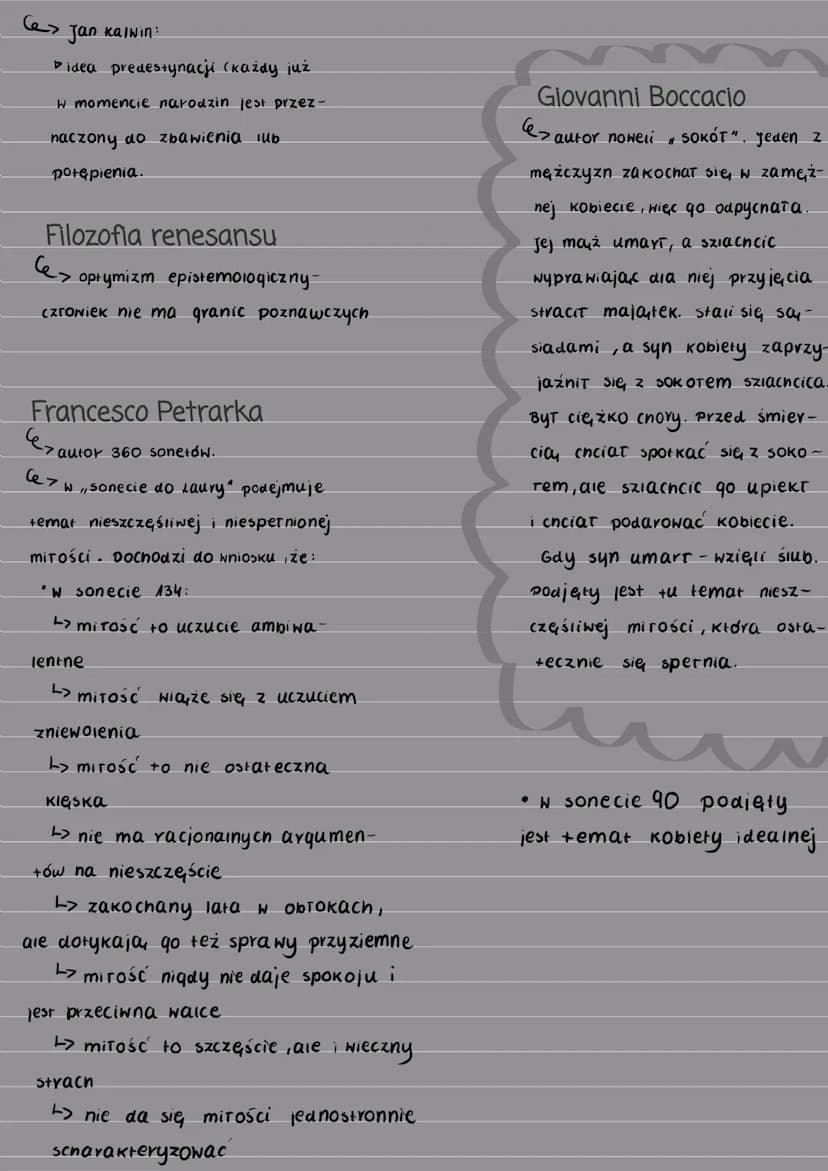 Jan Kalwin:
idea predestynacji (każdy już
w momencie narodzin jest przez-
naczony do zbawienia lub
potępienia.
Filozofia renesansu
optymizm epistemologiczny-
człowiek nie ma granic poznawczych
Francesco Petrarka
autor 360 sonetów.
w „sonecie do Laury" podejmuje
temat nieszczęśliwej i niespełnionej
miłości. Dochodzi do wniosku, że:
• w sonecie 134:
↳ miłość to uczucie ambiwa-
lentne
↳ miłość wiąże się z uczuciem
zniewolenia
↳ miłość to nie ostateczna
klęska
↳ nie ma racjonalnych argumen-
tów na nieszczęście
↳ zakochany lata w obłokach,
ale dotykają go też sprawy przyziemne
↳ miłość nigdy nie daje spokoju i
jest przeciwna walce
↳ miłość to szczęście, ale i wieczny
strach
↳ nie da się miłości jednostronnie
scharakteryzować
Giovanni Boccacio
autor noweli „sokół". Jeden z
mężczyzn zakochał się w zamęż-
nej kobiecie, więc go odpychała.
Jej mąż umarł, a szlachcic
wyprawiając dla niej przyjęcia
stracił majątek. Stali się są-
siadami, a syn kobiety zaprzy-
jaźnił się z sokołem szlachcica.
Był ciężko chory. Przed śmier-
cią chciał spotkać się z soko-
łem, ale szlachcic go upiekł
i chciał podarować kobiecie.
Gdy syn umarł - wzięli ślub.
Podjęty jest tu temat niesz-
częśliwej miłości, która osta-
tecznie się spełnia.
• W sonecie 90 podjęty
jest temat kobiety idealnej